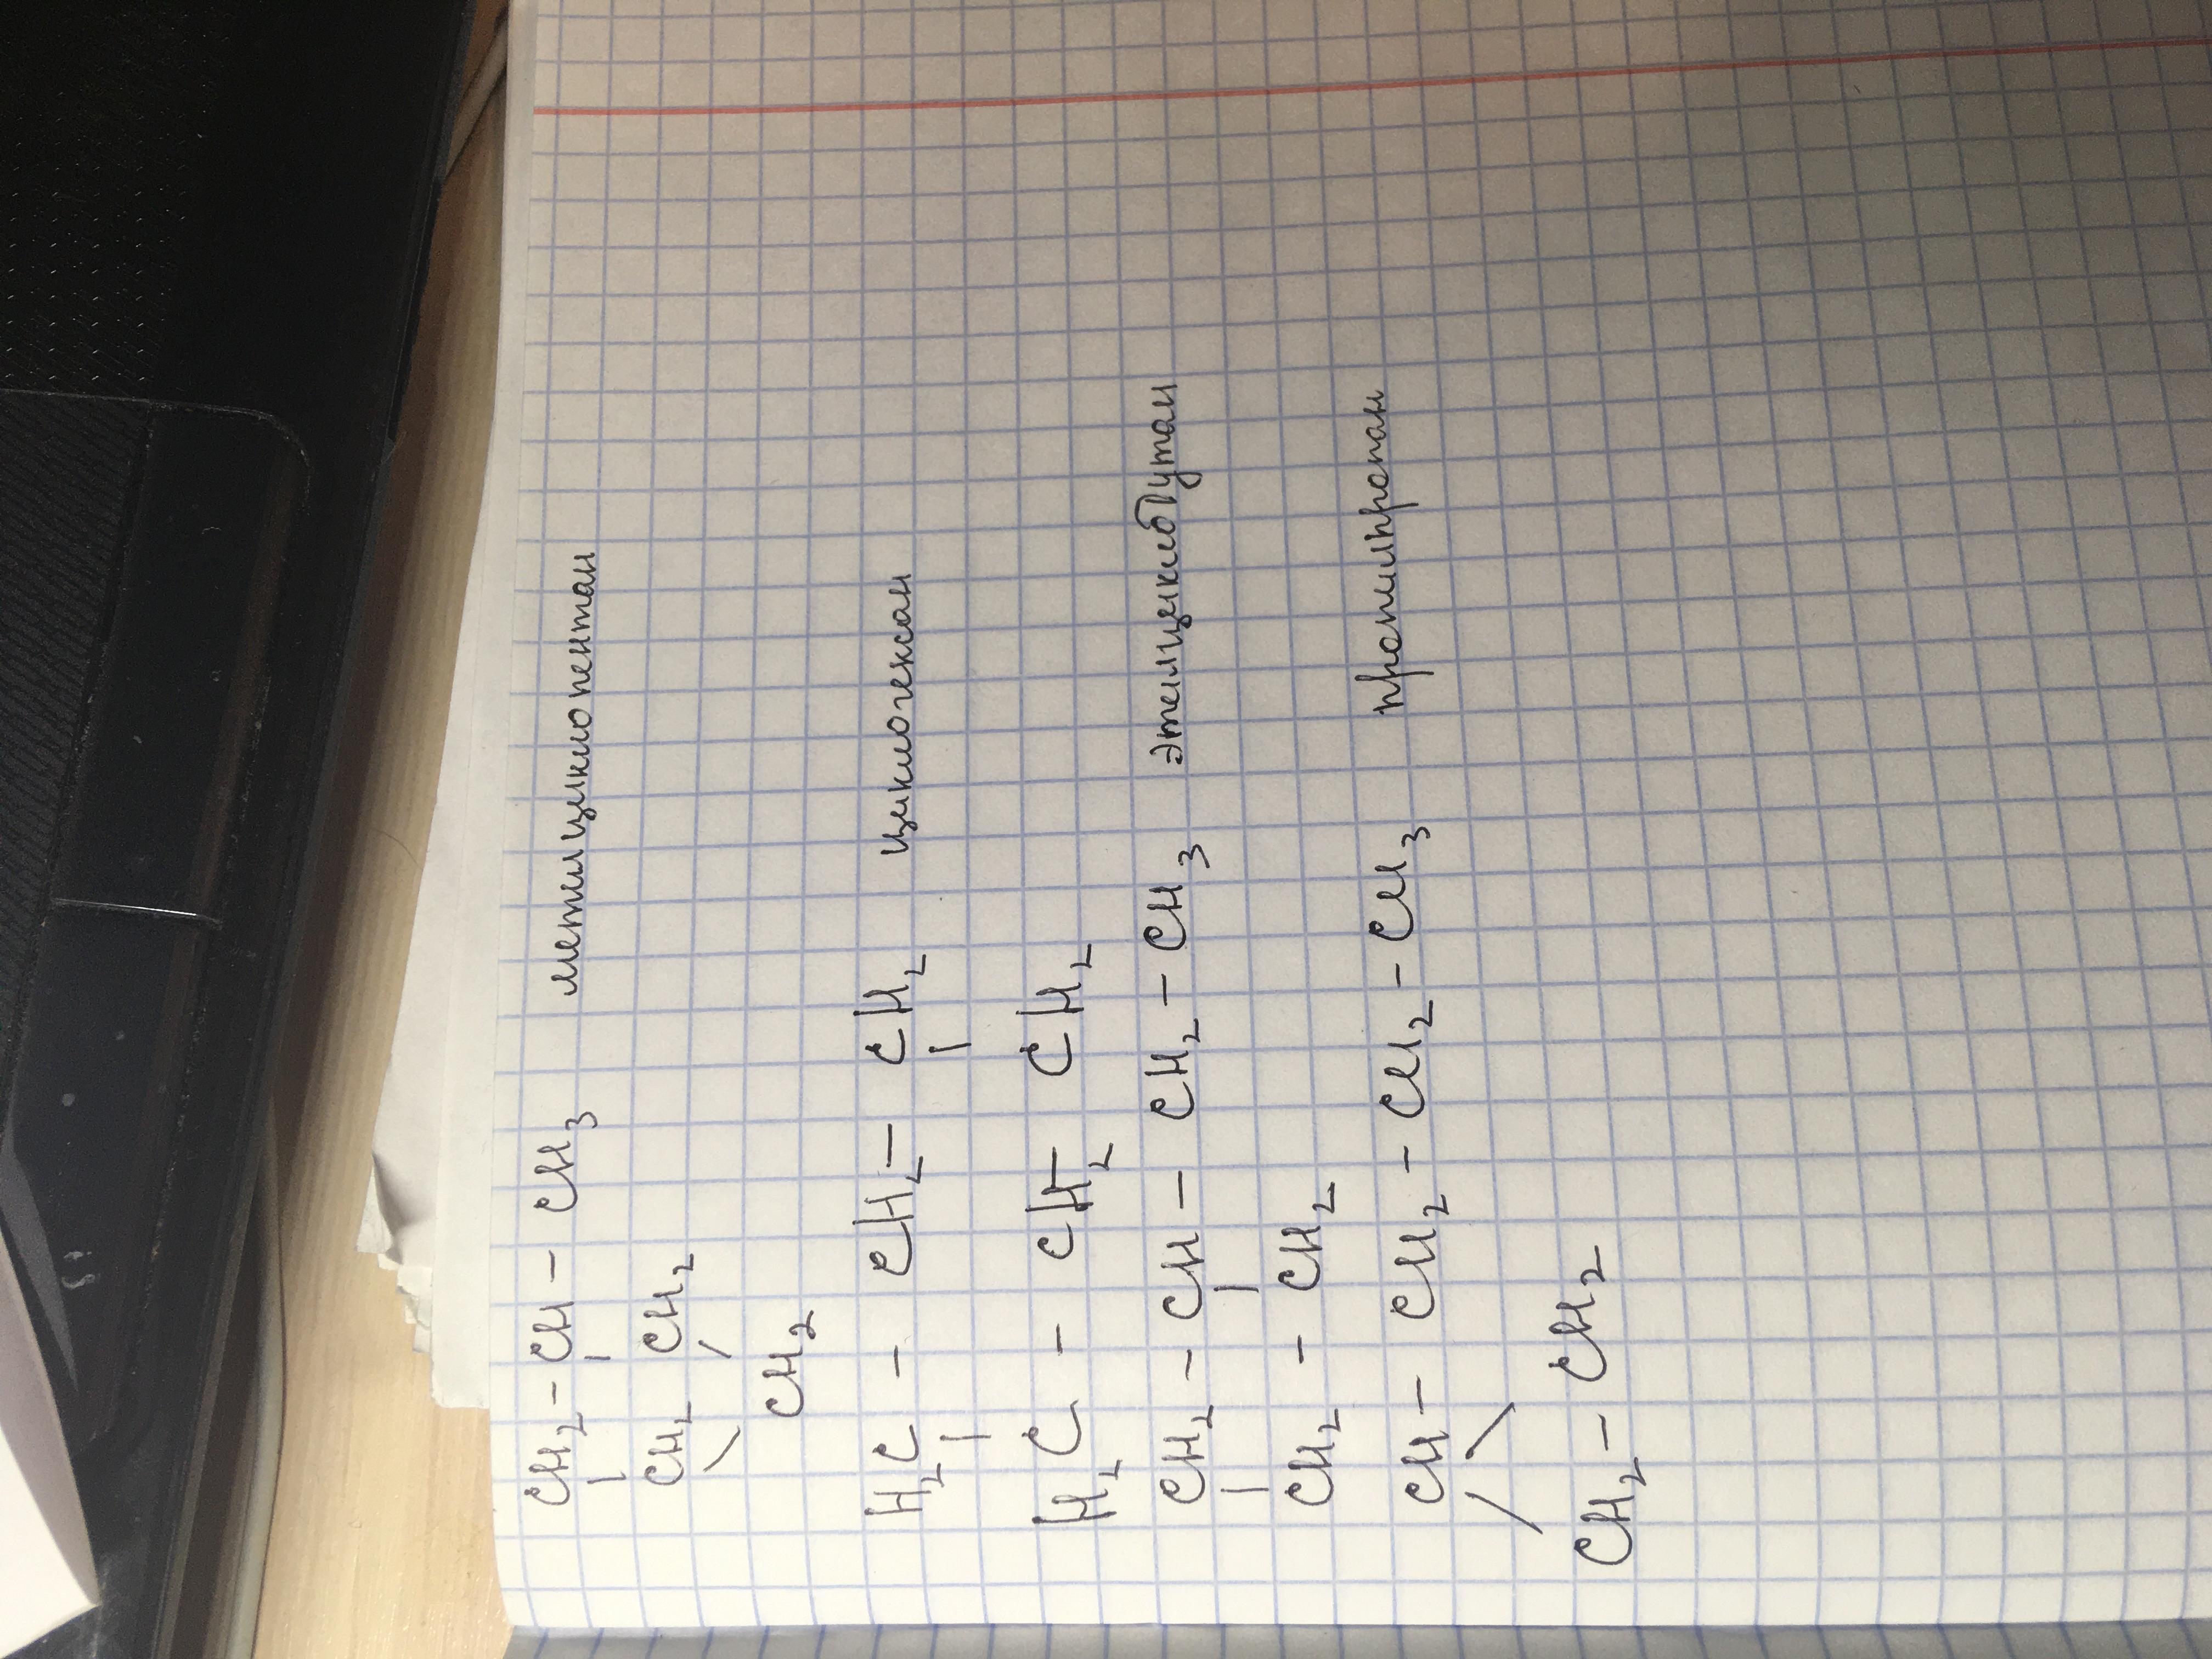 CH₂ - CH - CH₃ метилциклопентан
| |
CH₂ CH₂
\ /
CH₂
H₂C - CH₂ - CH₂ циклогексан
| |
H₂C - CH₂ - CH₂
CH₂ - CH - CH₂ - CH₃ этилцикобутан
| |
CH₂ - CH₂
CH - CH₂ - CH₂ - CH₃ пропилпропан
/ \
CH₂ - CH₂